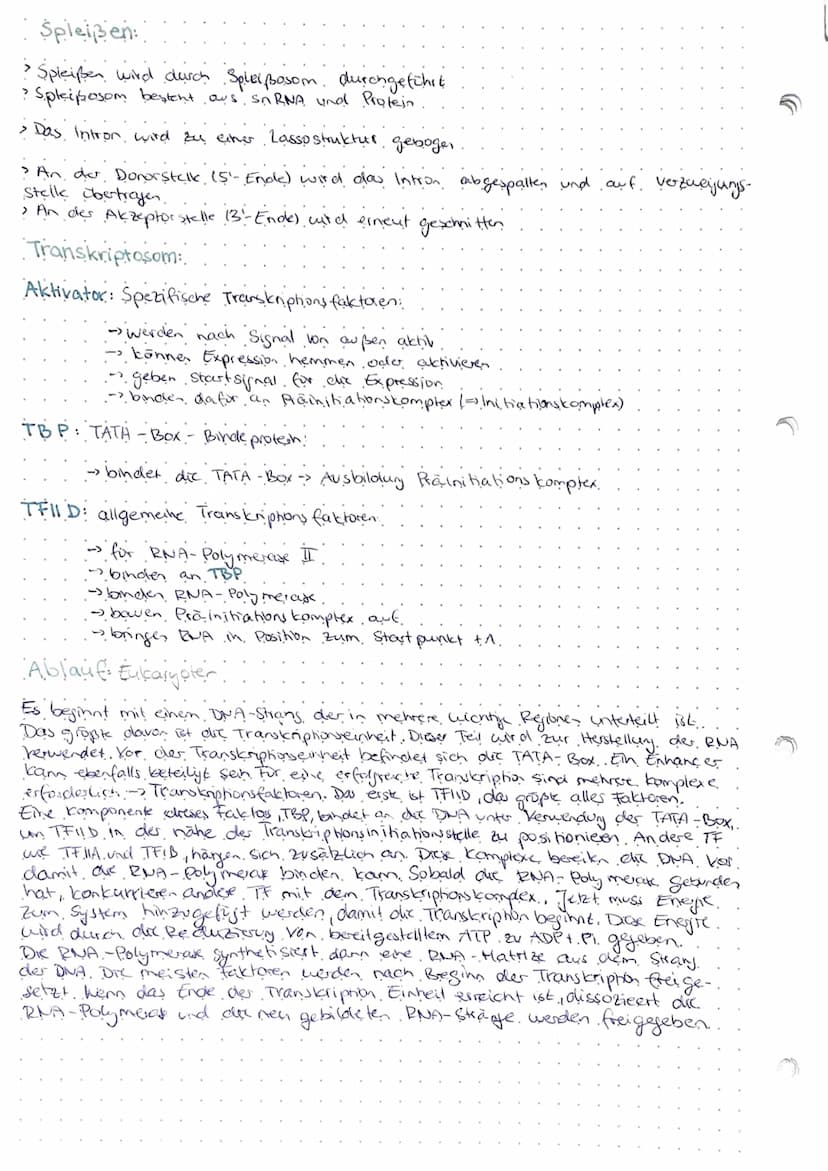 Spleißen:
> Spleißen wird durch Spleißosom durchgeführt
> Spleißosom besteht aus snRNA und Protein
> Das Intron wird zu einer Lassostruktur gebogen
> An der Donorstelle (5'-Ende) wird das Intron abgespalten und auf Verzweigungs-
stelle übertragen
> An der Akzeptorstelle (3'-Ende) wird erneut geschnitten
Transkriptosom:
Aktivator: Spezifische Transkriptionsfaktoren:
→ werden nach Signal von außen aktiv
→ können Expression hemmen oder aktivieren
→ geben Startsignal für die Expression
→ binden dafür an Präinitiationskomplex (⇒ Initiationskomplex)
TBP: TATA-Box-Bindeprotein:
→ bindet die TATA-Box → Ausbildung Präinitiationskomplex
TFIID: allgemeine Transkriptionsfaktoren
→ für RNA-Polymerase II
→ binden an TBP
→ binden RNA-Polymerase
→ bauen Präinitiationskomplex auf
→ bringen RNA in Position zum Startpunkt +1
Ablauf: Eukaryoten
Es beginnt mit einem DNA-Strang, der in mehrere wichtige Regionen unterteilt ist.
Das größte davon ist die Transkriptionseinheit. Dieser Teil wird zur Herstellung der RNA
verwendet. Vor der Transkriptionseinheit befindet sich die TATA-Box. Ein Enhancer
kann ebenfalls beteiligt sein. Für eine erfolgreiche Transkription sind mehrere Komplexe
erforderlich → Transkriptionsfaktoren. Das erste ist TFIID, das größte aller Faktoren.
Eine Komponente dieses Faktors, TBP, bindet an die DNA unter Verwendung der TATA-Box,
um TFIID in der nähe der Transkriptionsinitiationsstelle zu positionieren. Andere TF
wie TFIIA und TFIIB, hängen sich zusätzlich an. Diese Komplexe bereiten die DNA vor
damit die RNA-Polymerase binden kann. Sobald die RNA-Polymerase gebunden
hat, konkurrieren andere TF mit dem Transkriptionskomplex. Jetzt muss Energie
zum System hinzugefügt werden, damit die Transkription beginnt. Diese Energie
wird durch die Reduzierung von bereitgestelltem ATP zu ADP + Pi gegeben.
Die RNA-Polymerase synthetisiert dann eine RNA-Matrize aus dem Strang
der DNA. Die meisten Faktoren werden nach Beginn der Transkription freige-
setzt. Wenn das Ende der Transkription Einheit erreicht ist, dissoziiert die
RNA-Polymerase und die neu gebildeten RNA-Stränge werden freigegeben.